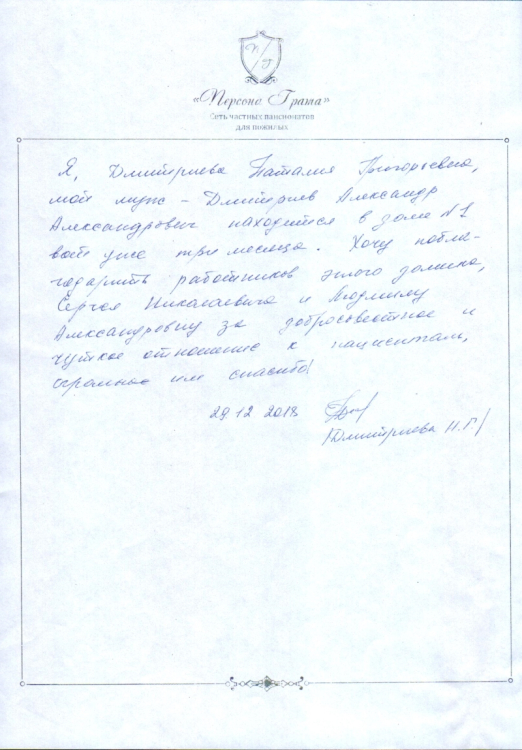 П Г
«Персона Грата»
Сеть частных пансионатов
для пожилых
Я, Дмитриева Наталия Григорьевна,
мой муж – Дмитриев Александр
Александрович находится в доме №1
вот уже три месяца. Хочу побла-
годарить работников этого домика,
Сергея Николаевича и Людмилу
Александровну за добросовестное и
чуткое отношение к пациентам,
огромное им спасибо!
29.12 2018
/Дмитриева Н.Г./